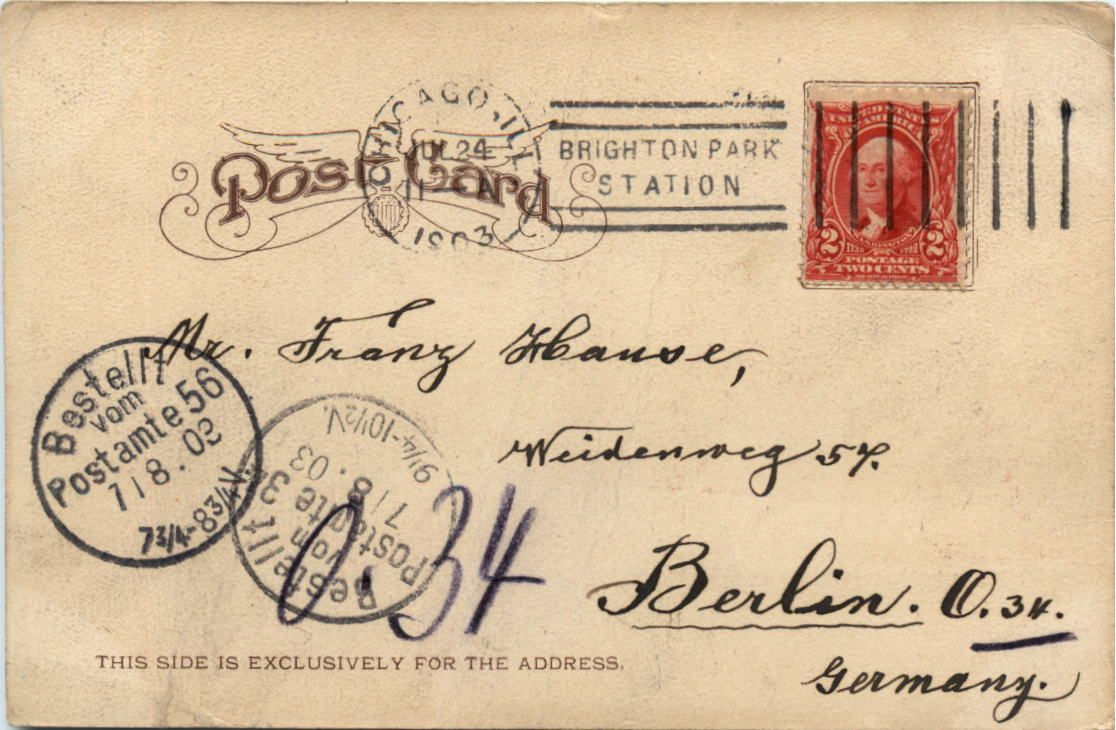 Post Card
CHICAGO, ILL.
JUL 24
1903
BRIGHTON PARK
STATION
UNITED STATES
OF AMERICA
WASHINGTON
2 2
POSTAGE
TWO CENTS
Mr. Franz Hause,
Weidenweg 57.
Berlin. O. 34.
Germany.
Bestellt
vom
Postamte 56
7/8.03
7 3/4-8 3/4 V.
Bestellt
vom
Postamte 3
7/8.03
9 1/4-10 1/2 V.
O. 34
THIS SIDE IS EXCLUSIVELY FOR THE ADDRESS.